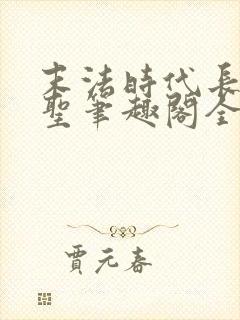 末法時代長
聖筆趣閣全
賈元春